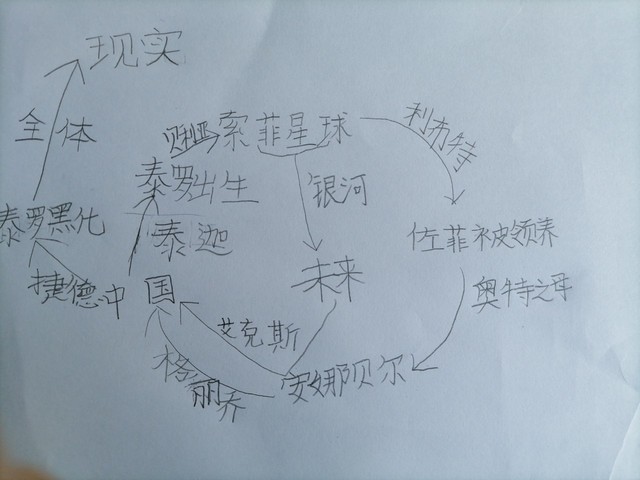 现实
全体
利布特
贝利亚
索菲星球
泰罗出生
银河
泰罗黑化
泰迦
佐菲被领养
捷德
中国
未来
奥特之母
艾克斯
格丽乔
安娜贝尔